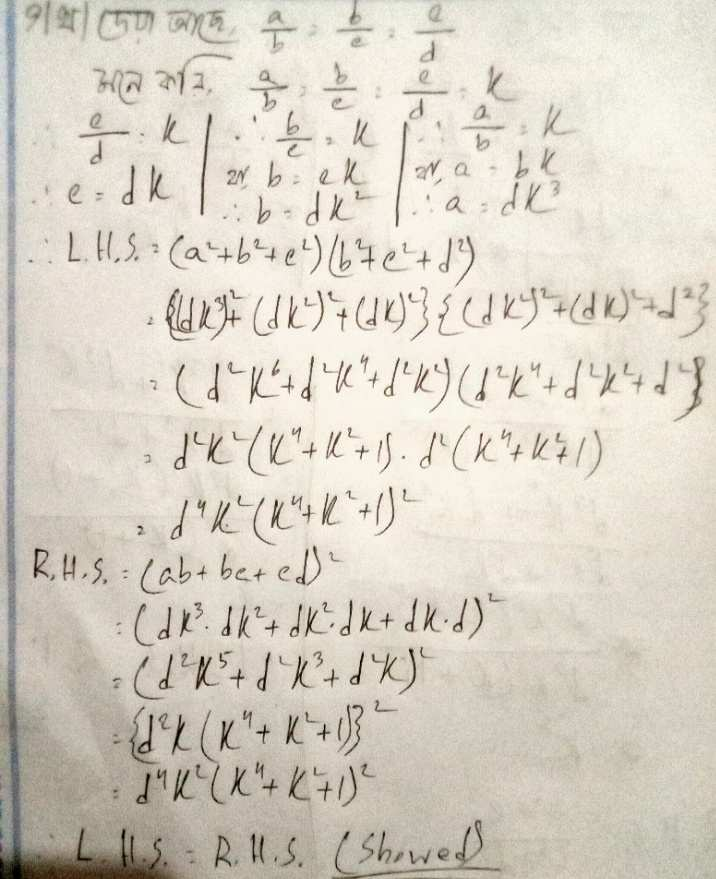 9।খ। দেওয়া আছে, a/b = b/c = c/d
মনে করি, a/b = b/c = c/d = k
∴ c/d = k | ∴ b/c = k | ∴ a/b = k
∴ c = dk | বা, b = ck | বা, a = bk
∴ b = dk² | ∴ a = dk³
∴ L.H.S. = (a²+b²+c²)(b²+c²+d²)
= {(dk³)²+(dk²)²+(dk)²}{(dk²)²+(dk)²+d²}
= (d²k⁶+d²k⁴+d²k²)(d²k⁴+d²k²+d²}
= d²k²(k⁴+k²+1). d²(k⁴+k²+1)
= d⁴k²(k⁴+k²+1)²
R.H.S. = (ab+bc+cd)²
= (dk³. dk²+dk².dk+dk.d)²
= (d²k⁵+d²k³+d²k)²
= {d²k(k⁴+k²+1)}²
= d⁴k²(k⁴+k²+1)²
∴ L.H.S. = R.H.S. (Showed)